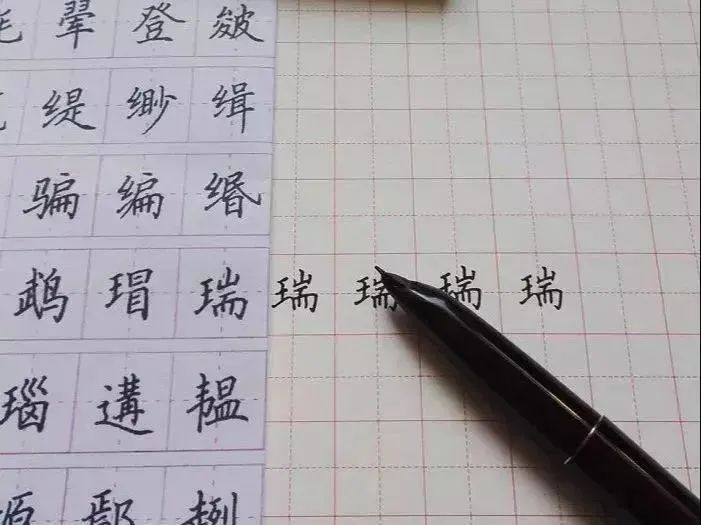 翚 登 皴
缇 缈 缉
骗 编 缗
鹉 瑁 瑞 瑞 瑞 瑞 瑞
瑙 遘 韫
鄢